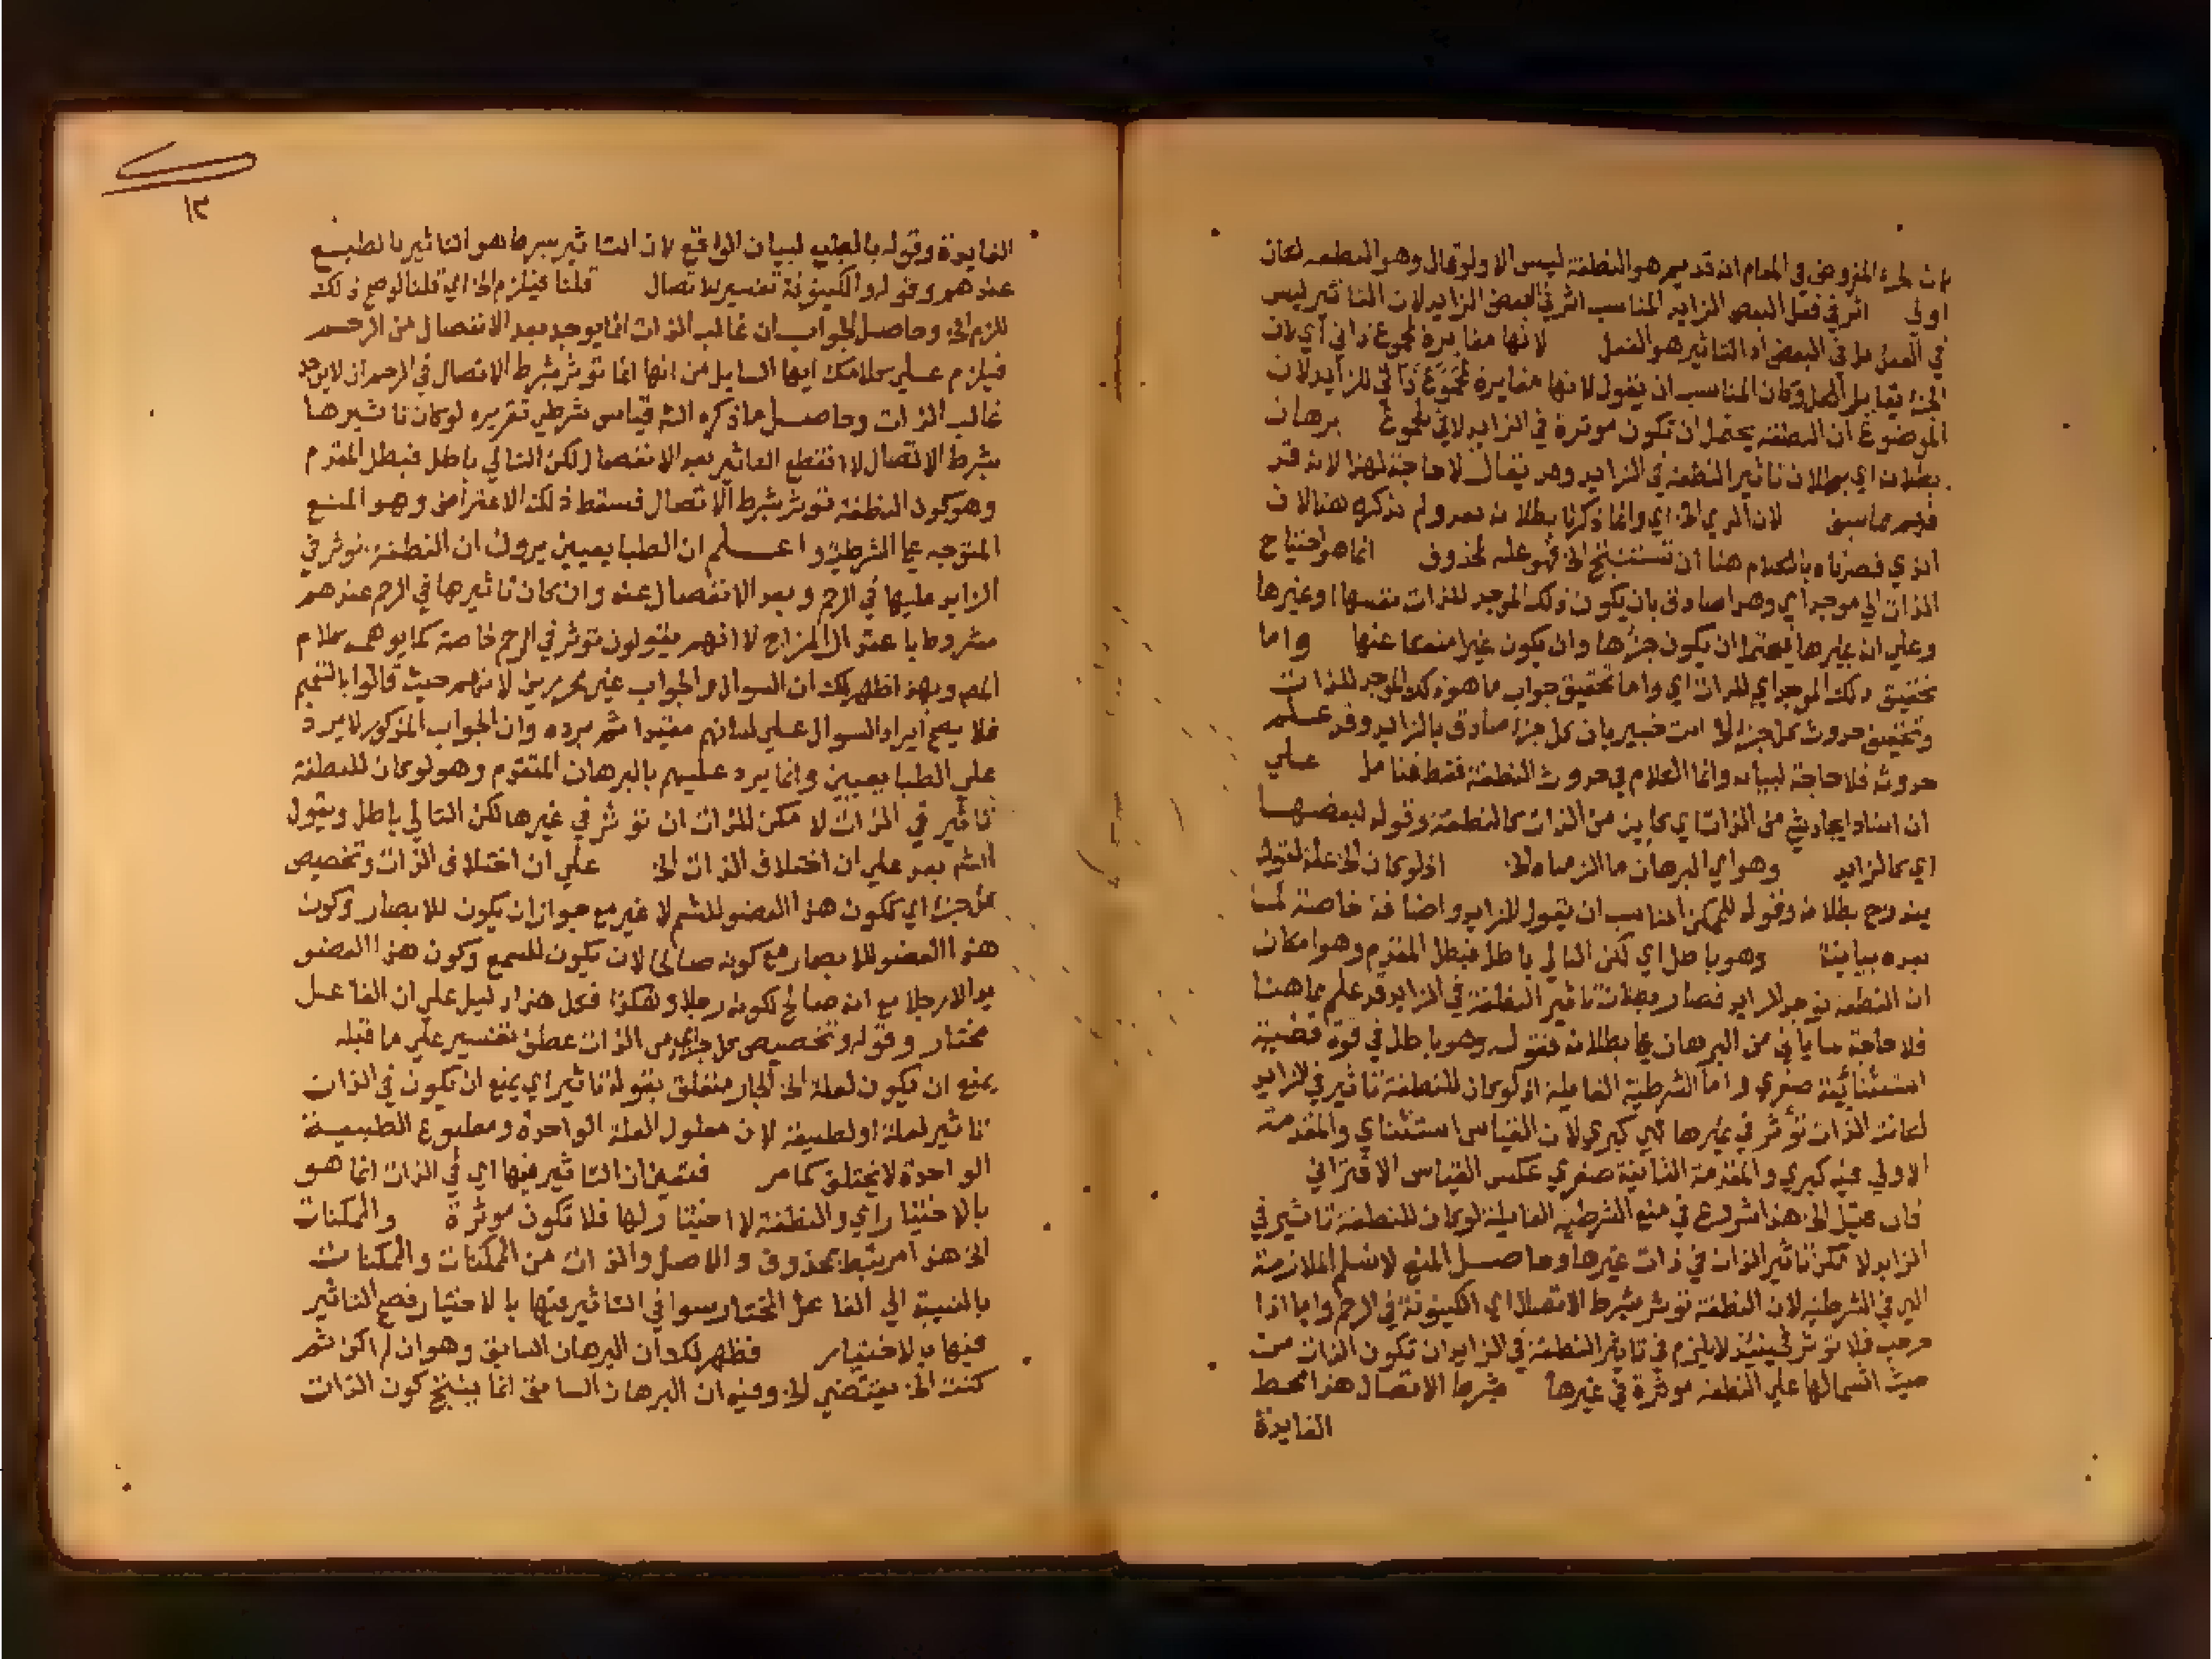 بان الجزء المفروض في المقام انه قديم هو النطفة ليس الا ولو قال وهو النطفة لكان
اولي اثر في فعل البعض الزايد المناسب اثر في البعض الزايد لان التاثير ليس
في الفعل بل في البعض اذ التاثير هو الفعل لانها مغايرة لمجموع ذاتي اي لان
الجزء يقابل الكل وكان المناسب ان يقول لانها مغايرة لمجموع ذاتي للزايد لان
الموضوع ان النطفة يحتمل ان تكون موثرة في الزايد لا في المجموع برهان
بطلانه اي بطلان تاثير النطفة في الزايد وقد يقال لا حاجة لهذا لانه قد
فهم مما سبق لان الذي الخ اي وانما ذكرنا بطلانه بعد ولم نذكره هنا لان
الذي قصرناه بالكلام هنا ان نستنتج الخ فهو علة لمحذوف انما هو احتياج
الذات الي موجد اي وهو صادق بان يكون ذلك الموجد للذات نفسها او غيرها
وعلي ان غيرها يحتمل ان يكون جزءها وان يكون غيرا منفكا عنها واما
تحقيق ذلك الموجد اي للذات اي واما تحقيق جواب ما هو ذلك الموجد للذات
وتحقيق حدوث كل جزء الخ انت خبير بان كل جزء صادق بالزايد وقد علم
حدوثه فلا حاجة لبيانه وانما الكلام في حدوث النطفة فقط فتامل علي
ان اسناد ايجاد شي من الذات اي كاين من الذات كالنطفة وقوله لبعضها
اي كالزايد وهو اي البرهان ما الزمناه الخ اذ لو كان الخ علة لقوله
بعد وهو باطل اي لكن التالي باطل فبطل المقدم وهو امكان
ان النطفة توجد الزايد فصار بطلان تاثير النطفة في الزايد قد علم مما هنا
فلا حاجة لما ياتي من البرهان علي بطلانه فقوله وهو باطل في قوة قضية
استثنائية صغري واما الشرطية القايلة لو كان للنطفة تاثير في الزايد
لكانت الذات تؤثر في غيرها فهي كبري لان القياس استثناي والمقدمة
الاولي فيه كبري والمقدمة الثانية صغري عكس القياس الاقتراني
فان قيل الخ هذا شروع في منع الشرطية القايلة لو كان للنطفة تاثير في
الزايد لا مكن تاثير الذات في ذات غيرها وحاصل المنع لا نسلم الملازمة
التي في الشرطية لان النطفة توثر بشرط الاتصال اي الكينونة في الرحم واما اذا
خرجت فلا توثر فحينيذ لا يلزم في تاثير النطفة في الزايد ان تكون الذات من
حيث اشتمالها علي النطفة موثرة في غيرها بشرط الاتصال هذا محط
الفايدة
الفايدة وقوله بالطبع لبيان الواقع لان التاثير بشرط هو التاثير بالطبع
عندهم وقوله والكينونة تفسير للاتصال قلنا فيلزم الخ اي قلنا لو صح ذلك
للزم الخ وحاصل الجواب ان غالب الذات انما يوجد بعد الانفصال من الرحم
فيلزم علي كلامك ايها السايل من انها انما توثر بشرط الاتصال في الرحم ان لا يوجد
غالب الذات وحاصل ما ذكره الش قياس شرطي تقريره لو كان تاثيرها
بشرط الاتصال لانقطع التاثير بعد الانفصال لكن التالي باطل فبطل المقدم
وهو كون النطفة توثر بشرط الاتصال فسقط ذلك الاعتراض وهو المنع
المتوجه علي الشرطية واعلم ان الطبايعيين يرون ان النطفة توثر في
الزايد عليها في الرحم وبعد الانفصال عنه وان كان تاثيرها في الرحم عندهم
مشروطا باعتدال المزاج لا انهم يقولون توثر في الرحم خاصة كما يوهمه كلام
المص وبهذا ظهر لك ان السوال والجواب غير محررين لانهم حيث قالوا بالتعميم
فلا يصح ايراد السوال علي لسانهم مقيدا ثم يرده وان الجواب المذكور لا يرد
علي الطبايعيين وانما يرد عليهم بالبرهان المتقدم وهو لو كان للنطفة
تاثير في الذات لا مكن للذات ان توثر في غيرها لكن التالي باطل ويقول
الش بعد علي ان اختلاف الذات الخ علي ان اختلاف الذات وتخصيص
كل جزء اي ككون هذا العضو للشم لا غير مع جواز ان يكون للابصار وكون
هذا العضو للابصار مع كونه صالحا لان يكون للسمع وكون هذا العضو
يدا لا رجلا مع انه صالح لكونه رجلا وهكذا فكل هذا دليل علي ان الفاعل
مختار وقوله وتخصيص كل جزء من الذات عطف تفسير علي ما قبله
يمنع ان يكون لعلة الخ الجار متعلق بقوله تاثير اي يمنع ان يكون في الذات
تاثير لعلة او لطبيعة لان معلول العلة الواحدة ومطبوع الطبيعة
الواحدة لا يختلف كما مر فتعين ان التاثير فيها اي في الذات انما هو
بالاختيار اي والنطفة لا اختيار لها فلا تكون موثرة والممكنات
الخ هذا مرتبط بمحذوف والاصل والذات من الممكنات والممكنات
بالنسبة الي الفاعل المختار سوا في التاثير فيها بالاختيار فصح التاثير
فيها بالاختيار فظهر لك ان البرهان السابق وهو ان لم اكن ثم
كنت الخ يقتضي الخ وفيه ان البرهان السابق انما ينتج كون الذات